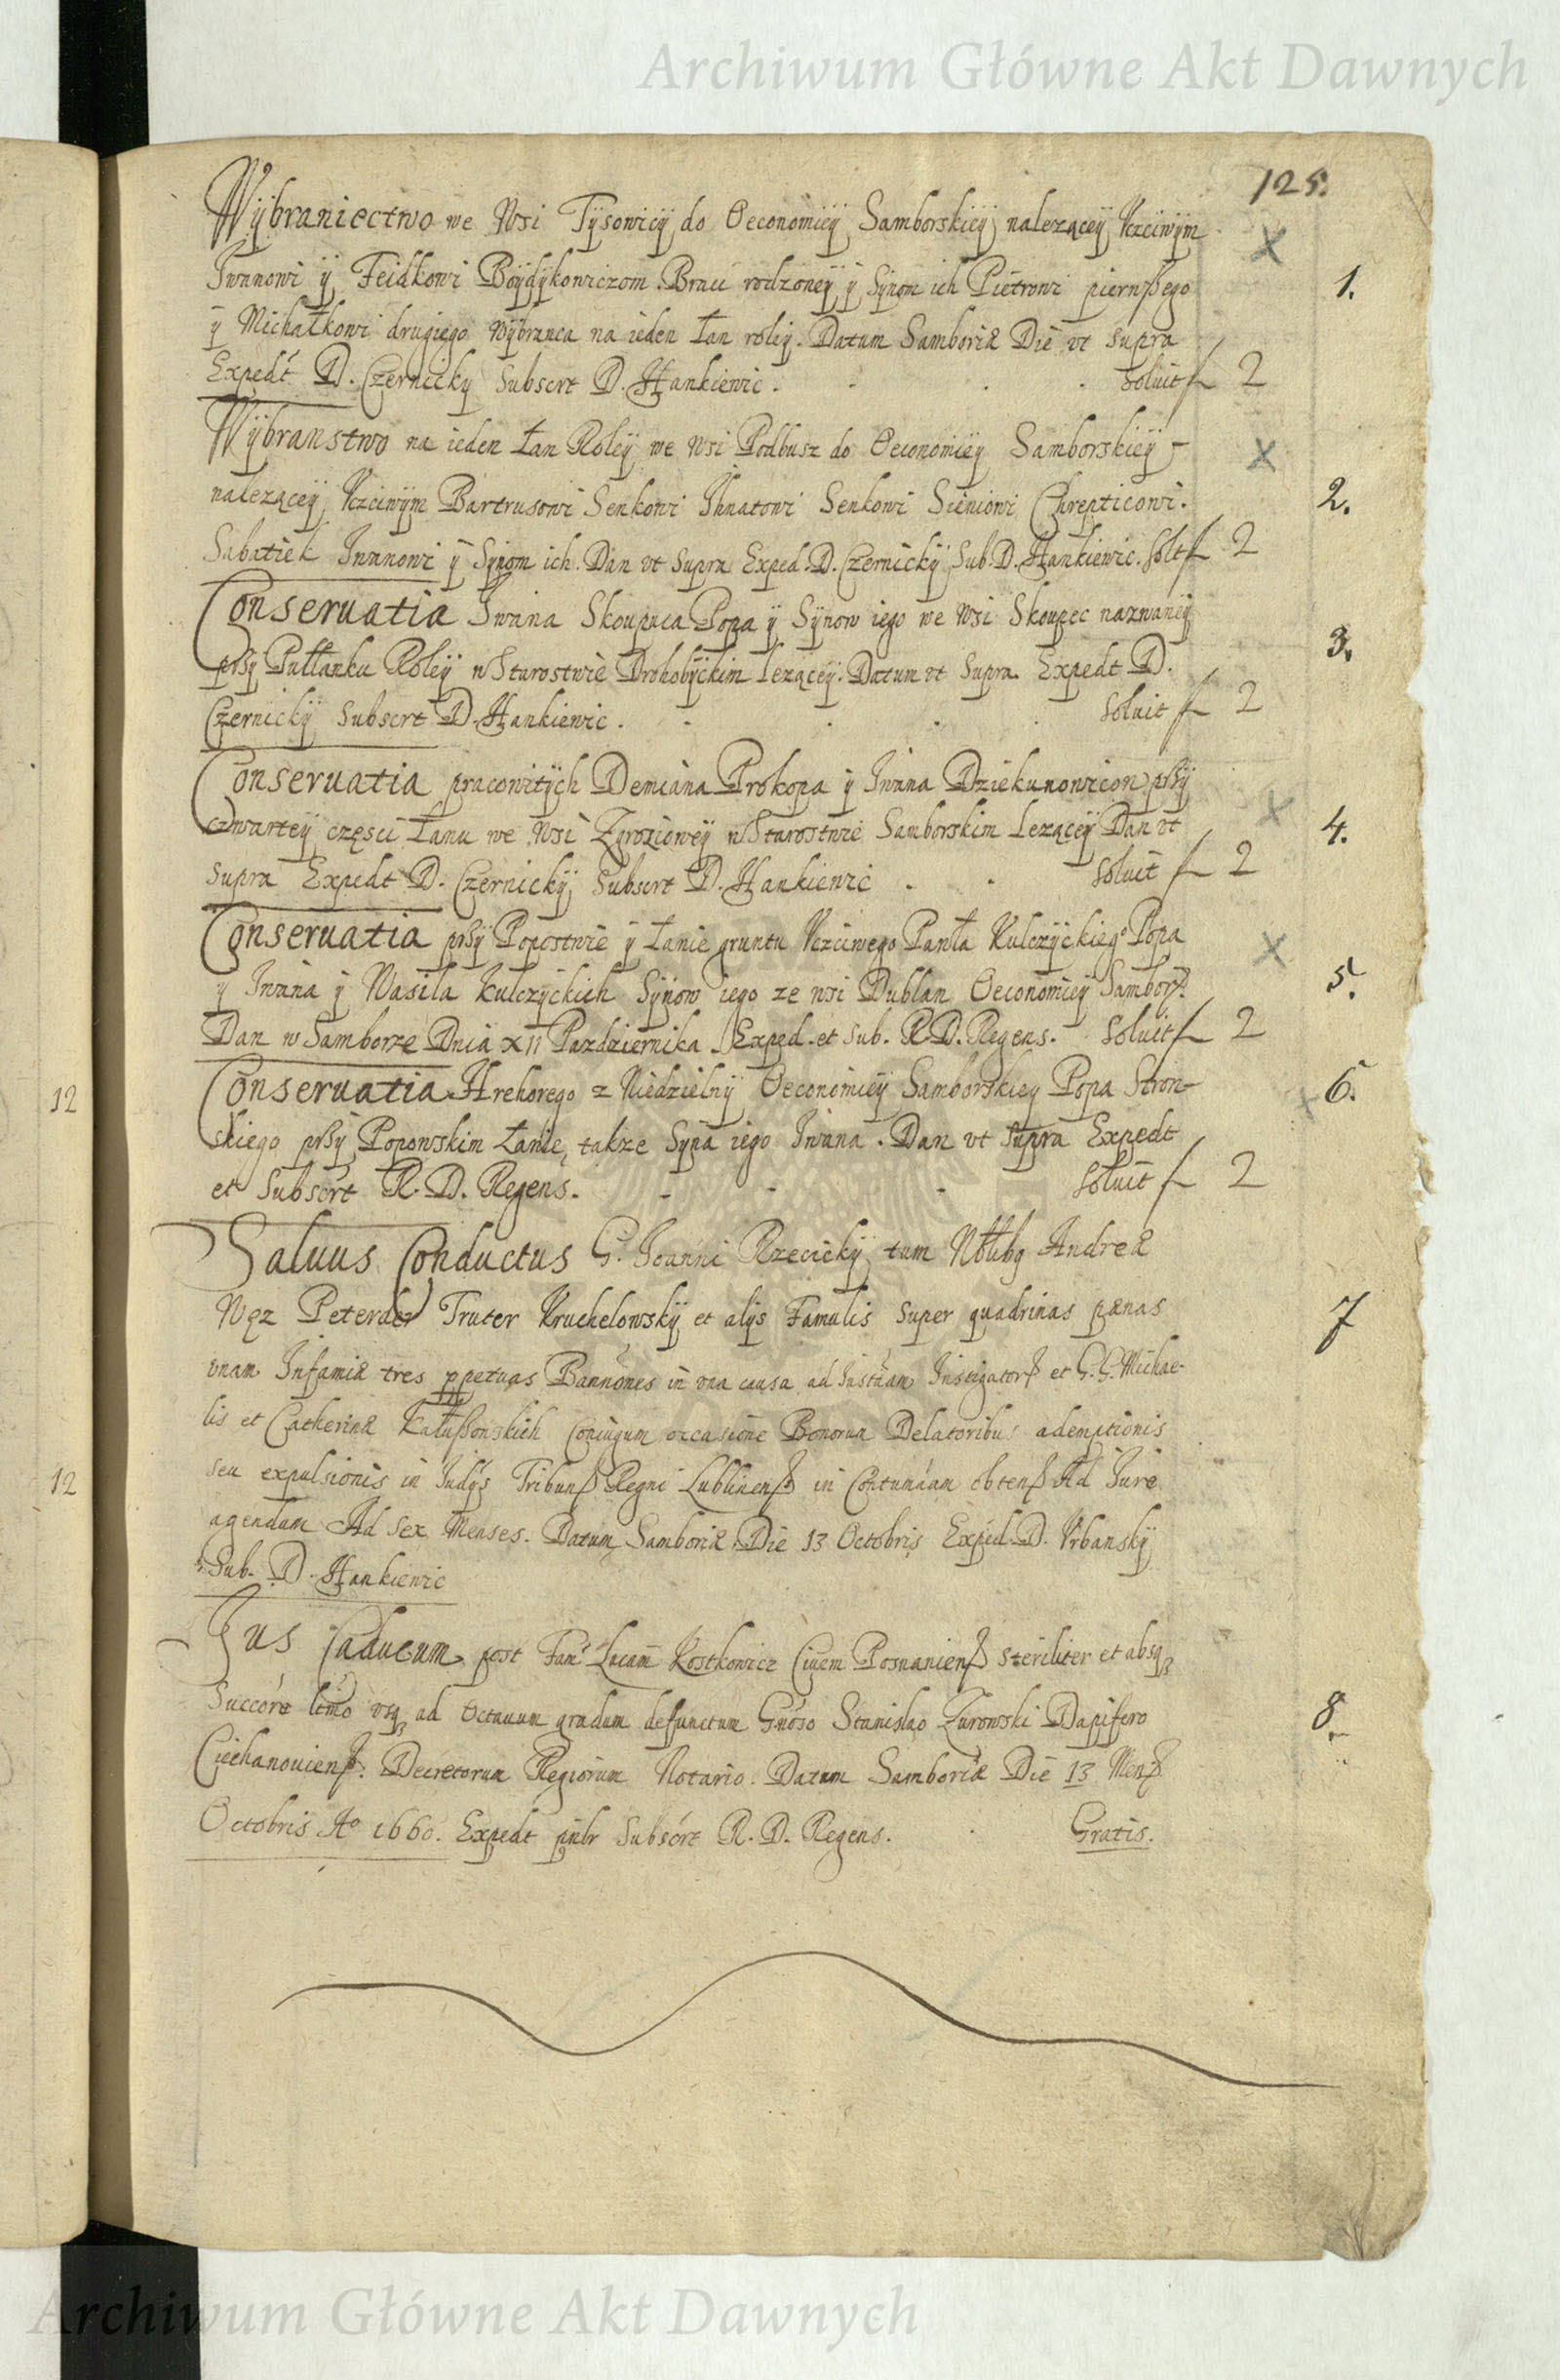 Archiwum Główne Akt Dawnych
125.
Wÿbraniectwo we Wsi Tÿsowicÿ do Oeconomiÿ Samborskieÿ nalezącÿ Vczciwÿm
Iwanowi ÿ Feidkowi Boÿdÿkowiczom Braci rodzoneÿ ÿ Sÿnom ich Pietrowi pierwßego
1.
ÿ Michałkowi drugiego Wÿbranca na ieden Łan roleÿ. Datum Samboriæ Die vt supra
Expedt D. Czernickÿ Subscrt D. Hankiewic. Soluit f 2
Wÿbranstwo na ieden Łan Roleÿ we Wsi Podbusz do Oeconomieÿ Samborskieÿ
nalezącеÿ Vczciwÿm Bartrusowi Senkowi Ihnatowi Senkowi Sieniowi Chrepticowi.
2.
Sabatiek Iwanowi ÿ Sÿnom ich. Dan vt Supra Exped. D. Czernickÿ Sub. D. Hankiewic. Solt f 2
Conseruatia Iwana Skoupuca Popa ÿ Sÿnow iego we Wsi Skoupec nazwaneÿ
3.
prßÿ Pułłanku Roleÿ w Starostwie Drohobÿckim Lezącеÿ. Datum vt Supra. Expedt D.
Czernickÿ Subscrt D. Hankiewic. Soluit f 2
Conseruatia pracowitÿch Demiana Prokopa ÿ Iwana Dziekunowicow prßÿ
czwarteÿ częsci Łanu we Wsi Zwozioweÿ w Starostwie Samborskim Lezącеÿ Dan vt
4.
supra Expedt D. Czernickÿ Subscrt D. Hankiewic Soluit f 2
Conseruatia prßÿ Popostwie ÿ Łanie gruntu Vczciwego Pawła Kulczÿckiego Popa
ÿ Iwana ÿ Wasila Kulczÿckich Sÿnow iego ze wsi Dublan Oeconomieÿ Sambors.
5.
Dan w Samborze Dnia XII Pazdziernika. Exped. et sub. R. D. Regens. Soluit f 2
Conseruatia Hrehorego z Niedzielnÿ Oeconomieÿ Samborskieÿ Popa Stron-
6.
skiego prßÿ Popowskim Łanie, takze Sÿna iego Iwana. Dan vt supra Expedt
et Subscrt R. D. Regens. Soluit f 2
Saluus Conductus G. Ioanni Rzecickÿ tum Nbibg Andreæ
Wąz Peterder Truter Kruchelowskÿ et alÿs Famulis super quadrinas pænas
7
vnam Infamiæ tres ppetuas Bannones in vna causa ad Instnam Instigatorß et G.G. Michae-
lis et Catherinæ Kałußowskich Coniugum occasione Bonorum Delatoribus ademptionis
seu expulsionis in Iudÿs Tribunß Regni Lublinenß in Contumaam obtenß Ad Iure
agendum Ad Sex Menses. Datum Samboriæ Die 13 Octobris Exped. D. Vrbanskÿ
Sub. D. Hankiewic
Ius Caducum post Fam Lucam Kostkowicz Ciuem Posnanienß steriliter et absq3
Succore ltmo vsq3 ad Octauum gradum defunctum Gnoso Stanislao Zurowski Dapifero
8.
Ciechanouienß. Decretorum Regiorum Notario. Datum Samboriæ Die 13 Menß
Octobris Ao 1660. Expedt pnbr Subscrt R. D. Regens. Gratis.
12
12
Archiwum Główne Akt Dawnych